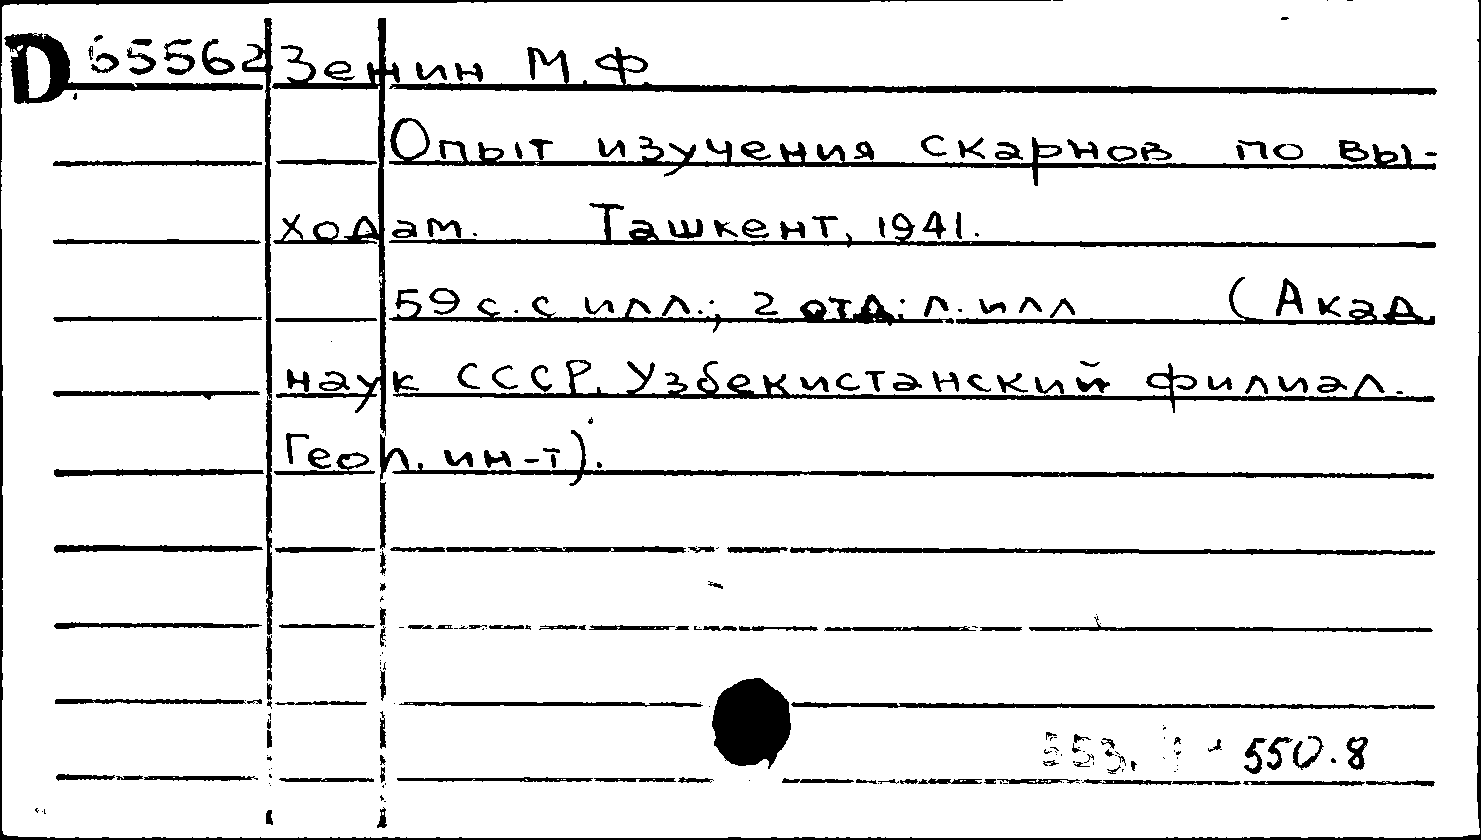 D 65562 Зенин М.Ф.
Опыт изучения скарнов по вы-
ходам. Ташкент, 1941.
59 с. с илл.; 2 отд. л. илл (Акад.
наук СССР. Узбекистанский филиал.
Геол. ин-т).
553. 550.8